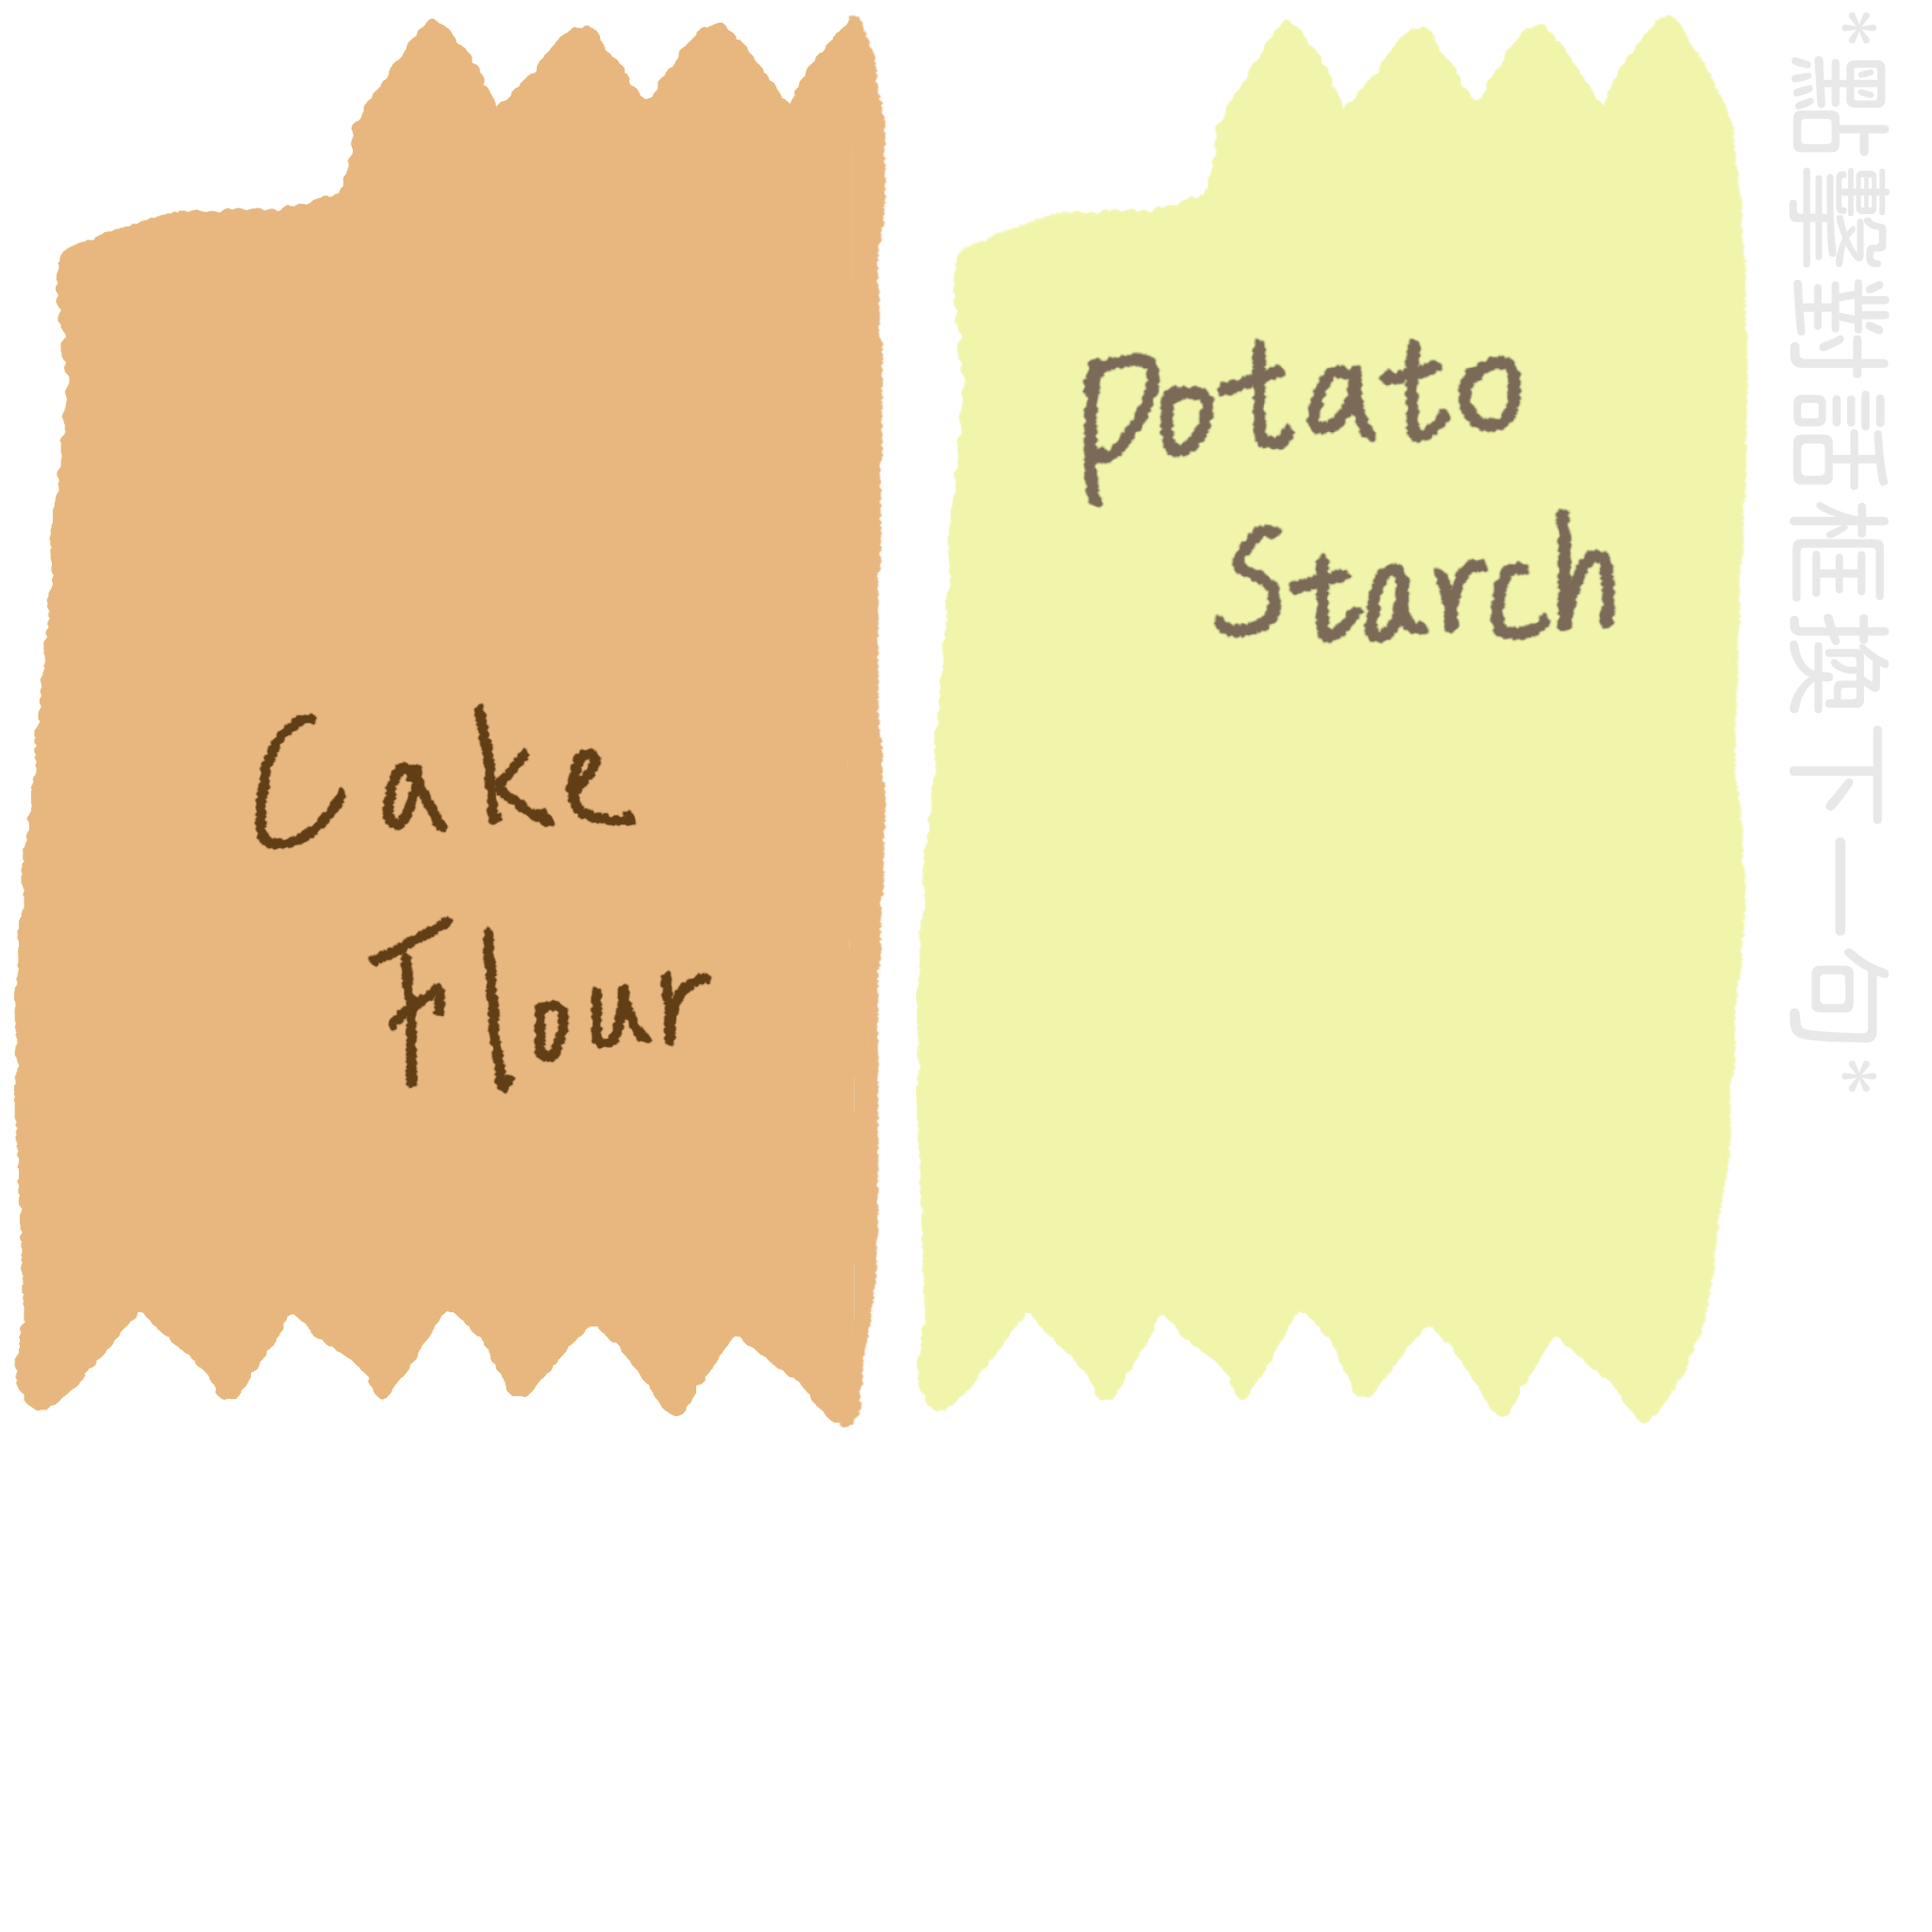 Cake
Flour
Potato
Starch
*點擊對話框換下一句*